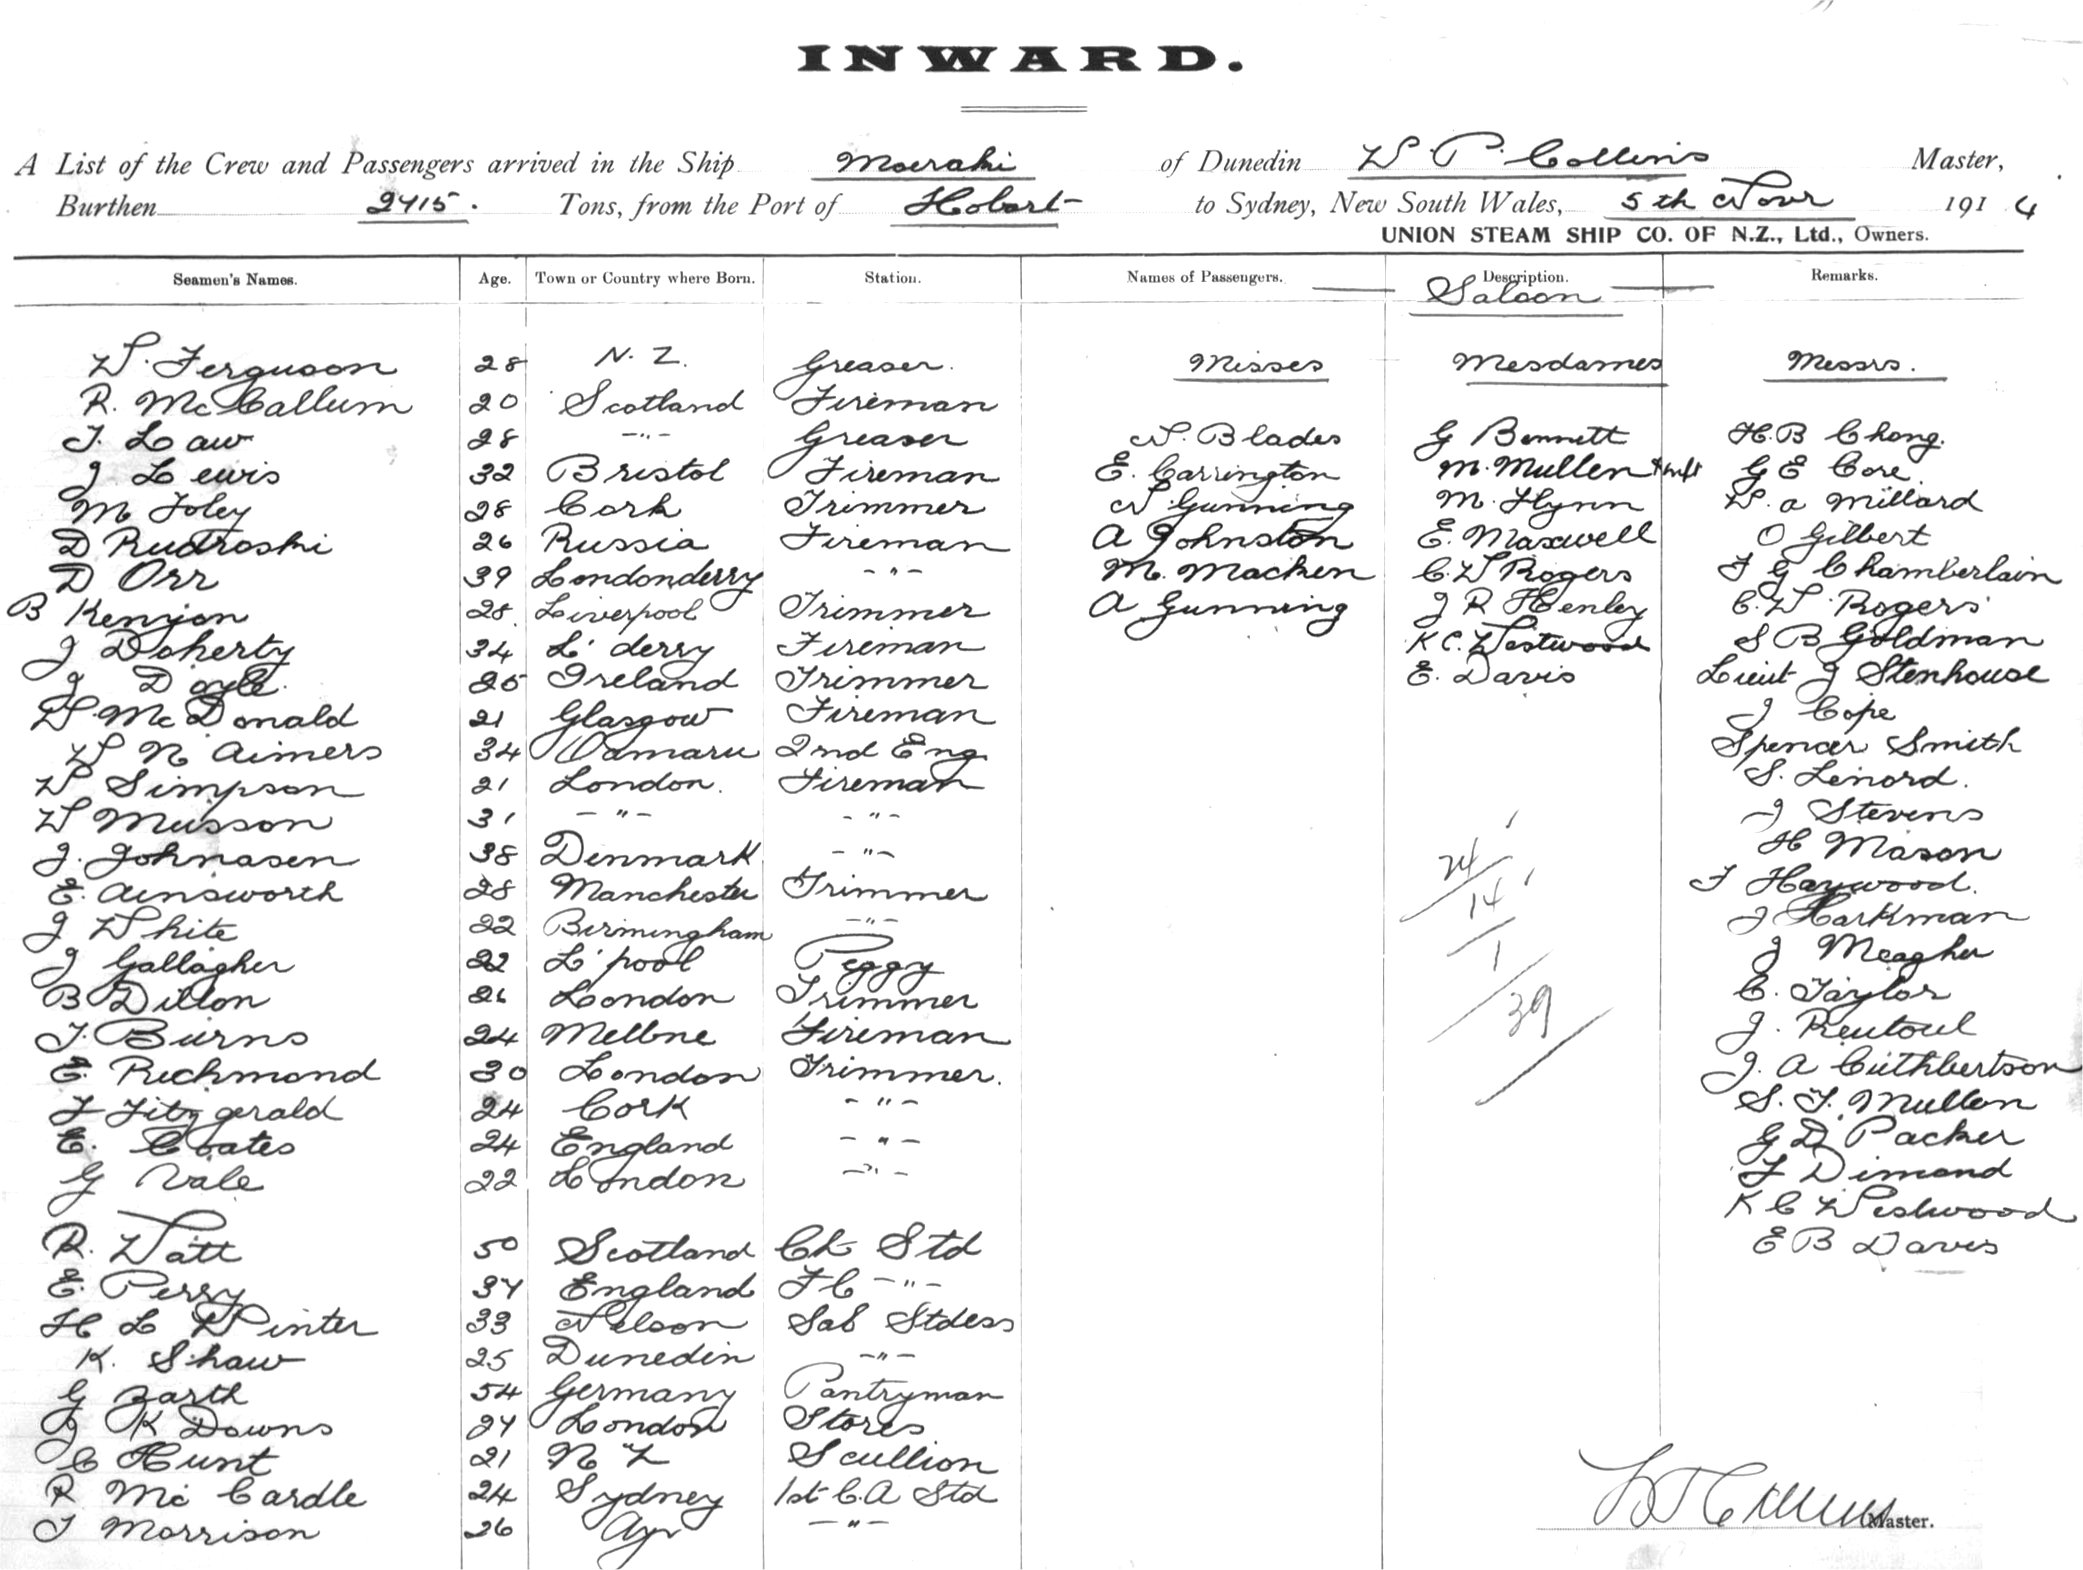 INWARD.
A List of the Crew and Passengers arrived in the Ship Moeraki of Dunedin W. P. Collins Master,
Burthen 2415. Tons, from the Port of Hobart to Sydney, New South Wales, 5th Novr 1914
UNION STEAM SHIP CO. OF N.Z., Ltd., Owners.
Seamen's Names. Age. Town or Country where Born. Station. Names of Passengers. Description. Remarks.
Saloon
W. Ferguson 28 N. Z. Greaser. Misses Mesdames Messrs.
R. McCallum 20 Scotland Fireman
T. Law 28 -"- Greaser N. Blades G Bennett H. B Chong.
J Lewis 32 Bristol Fireman E. Carrington M. Mullen & inft G E Core
M Foley 28 Cork Trimmer N Gunning M. Flynn W. a Millard
D Rudroski 26 Russia Fireman A Johnston E. Maxwell O Gilbert
D Orr 39 Londonderry -"- M. Macken C. W Rogers F G Chamberlain
B Kenyon 28 Liverpool Trimmer A Gunning J R Henley C. W Rogers
J Doherty 34 L'derry Fireman K C. Westwood S B Goldman
J Doyle. 25 Ireland Trimmer E. Davis Lieut J Stenhouse
W. McDonald 21 Glasgow Fireman J Cope
W N Aimers 34 Oamaru 2nd Eng. Spencer Smith
W Simpson 21 London. Fireman S. Lenord.
W Musson 31 -"- -"- J Stevens
J. Johnasen 38 Denmark -"- H Mason
E. Ainsworth 28 Manchester Trimmer F Haywood.
J White 22 Birmingham -"- J Harkman
J Gallagher 22 L'pool Peggy J Meagher
B Dillon 26 London Trimmer C. Taylor
T. Burns 24 Melbne Fireman J. Rentoul
E. Richmond 30 London Trimmer. J. A Cuthbertson
F Fitzgerald 24 Cork -"- S. T. Mullen
E. Coates 24 England -"- G D Packer
G Vale 22 London -"- F Dimond
K C Westwood
R. Watt 50 Scotland Ch Std E B Davis
E. Perry 37 England F C -"-
H L Winter 33 Nelson Sal Stdess
K. Shaw 25 Dunedin -"-
G Barth 54 Germany Pantryman
J K Downs 27 London Stores
C Hunt 21 N Z Scullion
R McCardle 24 Sydney 1st C. A Std
T Morrison 26 Ayr -"-
24
14
1
39
Master.